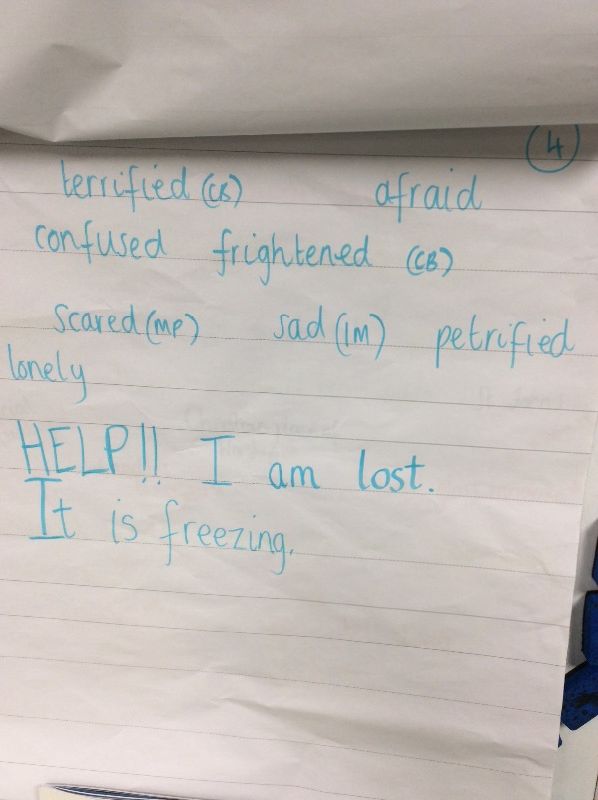 4
terrified (CR) afraid
confused frightened (CB)
scared (MP) sad (IM) petrified
lonely
HELP!! I am lost.
It is freezing.